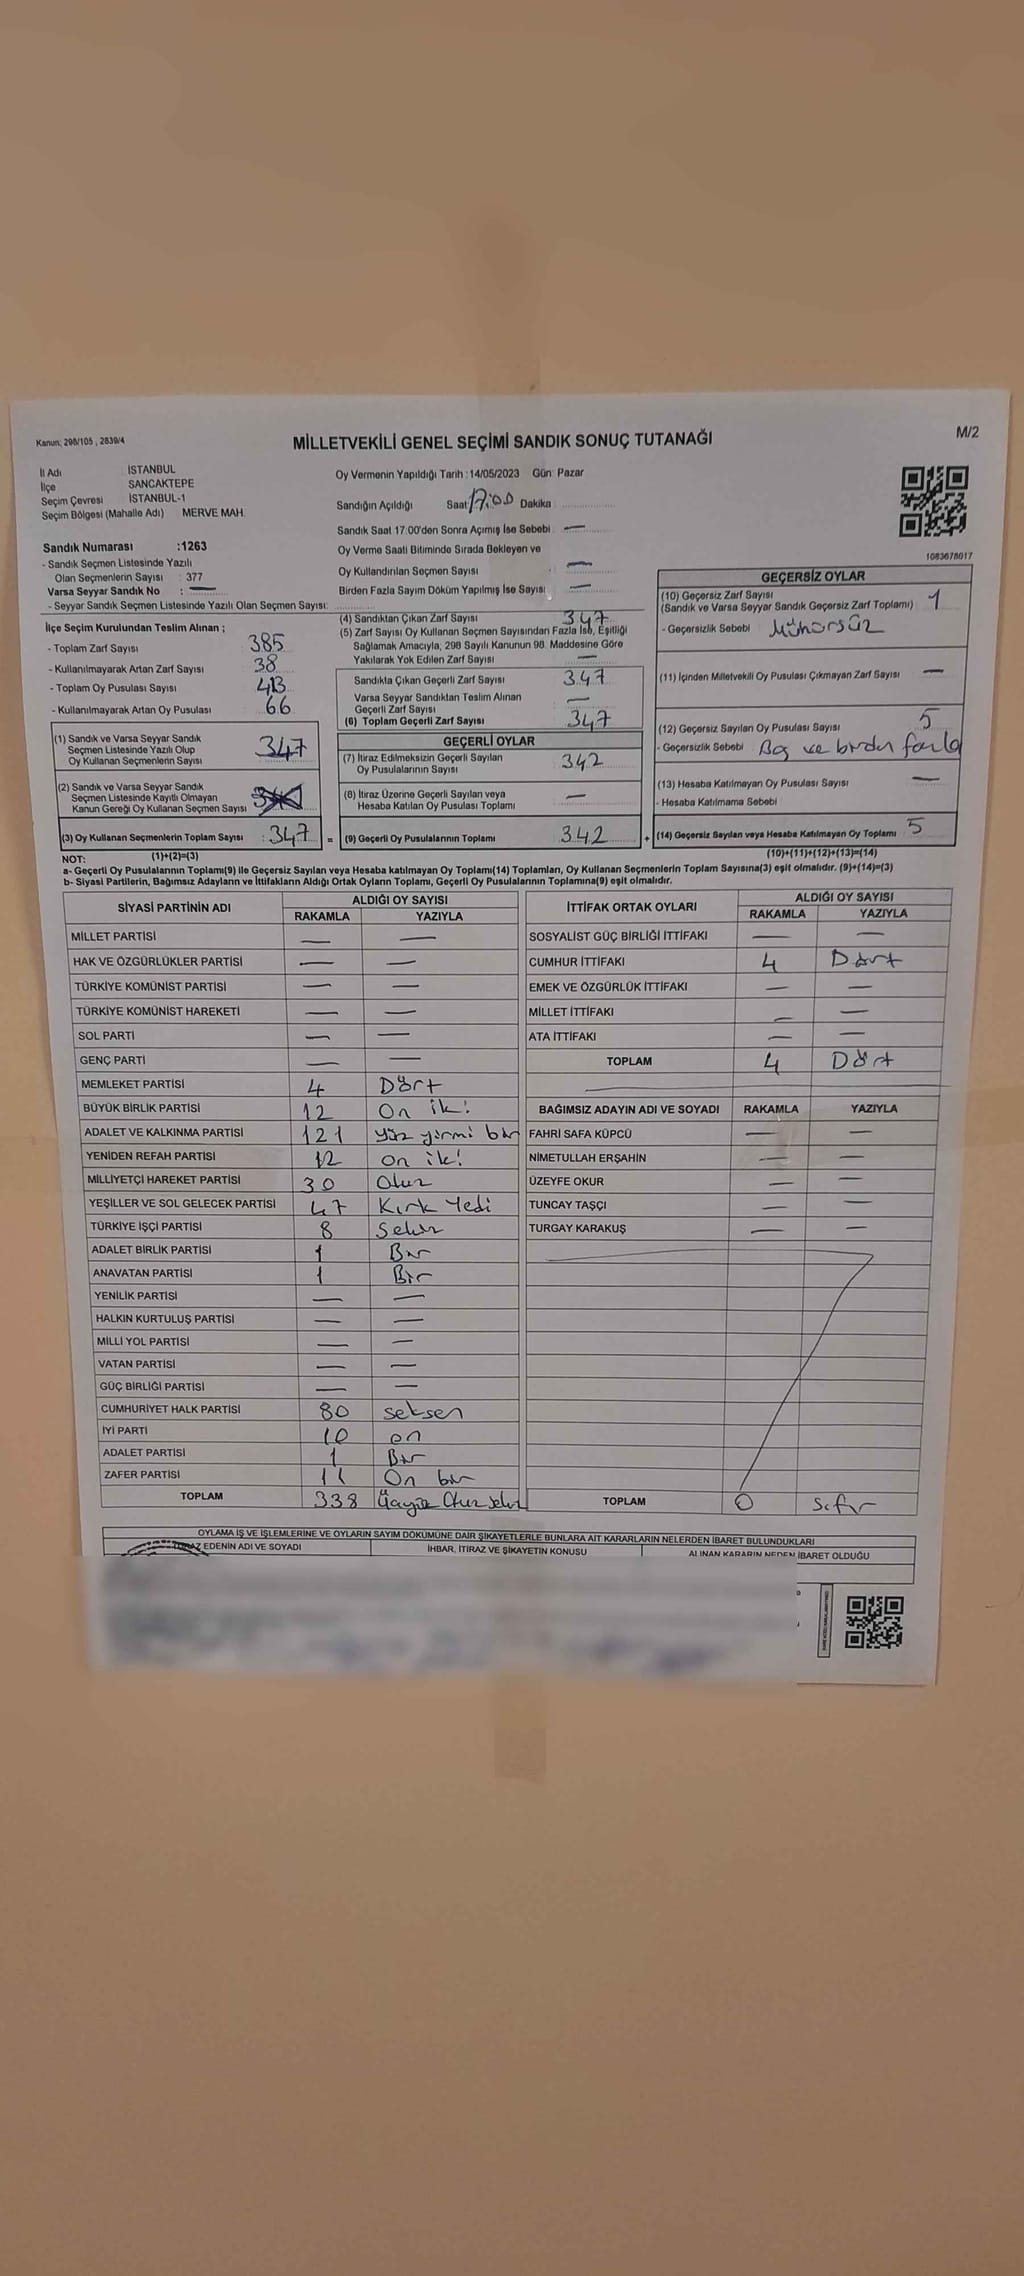 Kanun; 298/105 , 2839/4
MİLLETVEKİLİ GENEL SEÇİMİ SANDIK SONUÇ TUTANAĞI
M/2
İl Adı İSTANBUL
İlçe SANCAKTEPE
Seçim Çevresi İSTANBUL-1
Seçim Bölgesi (Mahalle Adı) MERVE MAH.
Oy Vermenin Yapıldığı Tarih :14/05/2023 Gün: Pazar
Sandığın Açıldığı Saat 17:00 Dakika
Sandık Saat 17:00'den Sonra Açımış İse Sebebi : —
Oy Verme Saati Bitiminde Sırada Bekleyen ve
Oy Kullandırılan Seçmen Sayısı : —
Birden Fazla Sayım Döküm Yapılmış İse Sayısı : —
1083678017
Sandık Numarası :1263
- Sandık Seçmen Listesinde Yazılı
Olan Seçmenlerin Sayısı : 377
Varsa Seyyar Sandık No : —
- Seyyar Sandık Seçmen Listesinde Yazılı Olan Seçmen Sayısı:
İlçe Seçim Kurulundan Teslim Alınan ;
- Toplam Zarf Sayısı : 385
- Kullanılmayarak Artan Zarf Sayısı : 38
- Toplam Oy Pusulası Sayısı : 413
- Kullanılmayarak Artan Oy Pusulası : 66
(1) Sandık ve Varsa Seyyar Sandık
Seçmen Listesinde Yazılı Olup
Oy Kullanan Seçmenlerin Sayısı : 347
(2) Sandık ve Varsa Seyyar Sandık
Seçmen Listesinde Kayıtlı Olmayan
Kanun Gereği Oy Kullanan Seçmen Sayısı
(3) Oy Kullanan Seçmenlerin Toplam Sayısı : 347 =
(4) Sandıktan Çıkan Zarf Sayısı : 347
(5) Zarf Sayısı Oy Kullanan Seçmen Sayısından Fazla İse, Eşitliği
Sağlamak Amacıyla; 298 Sayılı Kanunun 98. Maddesine Göre
Yakılarak Yok Edilen Zarf Sayısı : —
Sandıkta Çıkan Geçerli Zarf Sayısı : 347
Varsa Seyyar Sandıktan Teslim Alınan
Geçerli Zarf Sayısı : —
(6) Toplam Geçerli Zarf Sayısı : 347
GEÇERLİ OYLAR
(7) İtiraz Edilmeksizin Geçerli Sayılan
Oy Pusulalarının Sayısı : 342
(8) İtiraz Üzerine Geçerli Sayılan veya
Hesaba Katılan Oy Pusulası Toplamı : —
(9) Geçerli Oy Pusulalarının Toplamı : 342 +
GEÇERSİZ OYLAR
(10) Geçersiz Zarf Sayısı
(Sandık ve Varsa Seyyar Sandık Geçersiz Zarf Toplamı) : 1
- Geçersizlik Sebebi : Mühürsüz
(11) İçinden Milletvekili Oy Pusulası Çıkmayan Zarf Sayısı : —
(12) Geçersiz Sayılan Oy Pusulası Sayısı : 5
- Geçersizlik Sebebi : Boş ve birden fazla
(13) Hesaba Katılmayan Oy Pusulası Sayısı : —
- Hesaba Katılmama Sebebi :
(14) Geçersiz Sayılan veya Hesaba Katılmayan Oy Toplamı : 5
NOT: (1)+(2)=(3)
(10)+(11)+(12)+(13)=(14)
a- Geçerli Oy Pusulalarının Toplamı(9) ile Geçersiz Sayılan veya Hesaba katılmayan Oy Toplamı(14) Toplamları, Oy Kullanan Seçmenlerin Toplam Sayısına(3) eşit olmalıdır. (9)+(14)=(3)
b- Siyasi Partilerin, Bağımsız Adayların ve İttifakların Aldığı Ortak Oyların Toplamı, Geçerli Oy Pusulalarının Toplamına(9) eşit olmalıdır.
SİYASİ PARTİNİN ADI ALDIĞI OY SAYISI
RAKAMLA YAZIYLA
MİLLET PARTİSİ — —
HAK VE ÖZGÜRLÜKLER PARTİSİ — —
TÜRKİYE KOMÜNİST PARTİSİ — —
TÜRKİYE KOMÜNİST HAREKETİ — —
SOL PARTİ — —
GENÇ PARTİ — —
MEMLEKET PARTİSİ 4 Dört
BÜYÜK BİRLİK PARTİSİ 12 On iki
ADALET VE KALKINMA PARTİSİ 121 yüz yirmi bir
YENİDEN REFAH PARTİSİ 12 on iki
MİLLİYETÇİ HAREKET PARTİSİ 30 Otuz
YEŞİLLER VE SOL GELECEK PARTİSİ 47 Kırk Yedi
TÜRKİYE İŞÇİ PARTİSİ 8 Sekiz
ADALET BİRLİK PARTİSİ 1 Bir
ANAVATAN PARTİSİ 1 Bir
YENİLİK PARTİSİ — —
HALKIN KURTULUŞ PARTİSİ — —
MİLLİ YOL PARTİSİ — —
VATAN PARTİSİ — —
GÜÇ BİRLİĞİ PARTİSİ — —
CUMHURİYET HALK PARTİSİ 80 seksen
İYİ PARTİ 10 on
ADALET PARTİSİ 1 Bir
ZAFER PARTİSİ 11 On bir
TOPLAM 338 Üçyüz Otuz sekiz
İTTİFAK ORTAK OYLARI ALDIĞI OY SAYISI
RAKAMLA YAZIYLA
SOSYALİST GÜÇ BİRLİĞİ İTTİFAKI — —
CUMHUR İTTİFAKI 4 Dört
EMEK VE ÖZGÜRLÜK İTTİFAKI — —
MİLLET İTTİFAKI — —
ATA İTTİFAKI — —
TOPLAM 4 Dört
BAĞIMSIZ ADAYIN ADI VE SOYADI RAKAMLA YAZIYLA
FAHRİ SAFA KÜPCÜ — —
NİMETULLAH ERŞAHİN — —
ÜZEYFE OKUR — —
TUNCAY TAŞÇI — —
TURGAY KARAKUŞ — —
TOPLAM 0 Sıfır
OYLAMA İŞ VE İŞLEMLERİNE VE OYLARIN SAYIM DÖKÜMÜNE DAİR ŞİKAYETLERLE BUNLARA AİT KARARLARIN NELERDEN İBARET BULUNDUKLARI
EDENİN ADI VE SOYADI İHBAR, İTİRAZ VE ŞİKAYETİN KONUSU ALINAN KARARIN NEDEN İBARET OLDUĞU